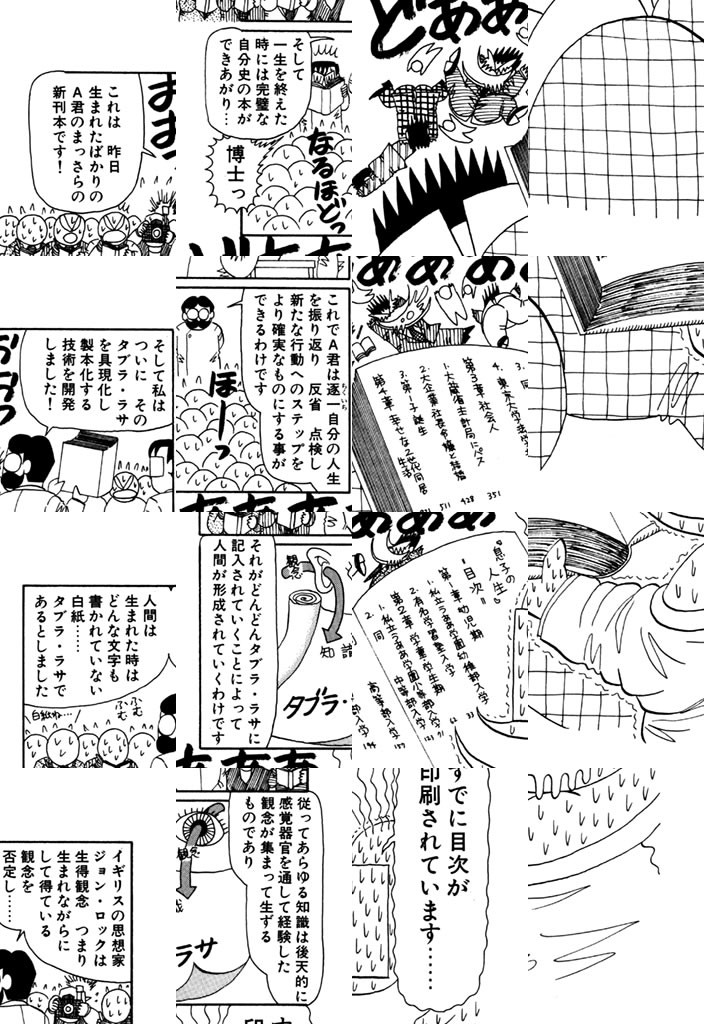 これは 昨日
生まれたばかりの
A君のまっさらの
新刊本です!
おお
そして私は
ついに その
タブラ・ラサ
を具現化し
製本化する
技術を開発
しました!
おおっ
人間は
生まれた時は
どんな文字も
書かれていない
白紙……
タブラ・ラサで
あるとしました
ふむ
ふむ
白紙ね…
イギリスの思想家
ジョン・ロックは
生得観念 つまり
生まれながらに
して得ている
観念を
否定し……
そして
一生を終えた
時には完璧な
自分史の本が
できあがり…
博士っ
なるほどっ
これでA君は逐一自分の人生
ちくいち
を振り返り 反省 点検し
新たな行動へのステップを
より確実なものにする事が
できるわけです
ほーっ
それがどんどんタブラ・ラサに
記入されていくことによって
人間が形成されていくわけです
観念
知識
タブラ・
従ってあらゆる知識は後天的に
感覚器官を通して経験した
観念が集まって生ずる
ものであり
観念
ラサ
どああ
ああああ
4. 東京大学法学
第3章 社会人
1. 大蔵省主計局にパス 351
2. 大企業社長令嬢と結婚 428
3. 第1子誕生 511
第4章 幸せな2世代同居
生活
ああああ
『息子の
人生』
“目次”
第1章 幼児期
1. 私立うああ学園幼稚部入学
2. 有名学習塾入学
第2章 学童学生期
1. 私立うああ学園小等部入学
2. 同 中等部入学
高等部入学
すでに目次が
印刷されています……